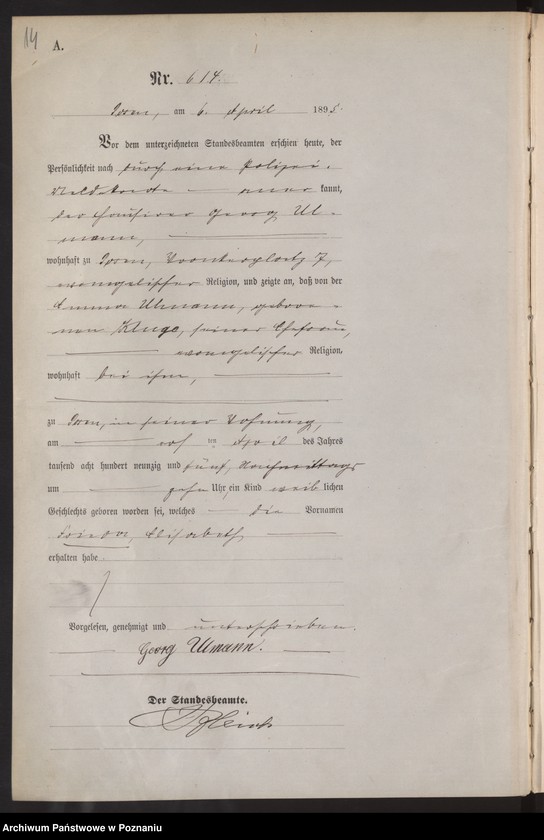 14
A.
Nr. 614.
Posen, am 6. April 1895.
Vor dem unterzeichneten Standesbeamten erschien heute, der
Persönlichkeit nach durch eine Polizei-
Meldekarte anerkannt,
der Hausirer Georg Ul-
mann,
wohnhaft zu Posen, 7,
evangelischer Religion, und zeigte an, daß von der
Emma Ulmann, gebore-
nen Kluge, seiner Ehefrau,
evangelischer Religion,
wohnhaft bei ihm,
zu Posen, in seiner Wohnung,
am ten April des Jahres
tausend acht hundert neunzig und fünf, Nachmittags
um zehn Uhr, ein Kind weiblichen
Geschlechts geboren worden sei, welches die Vornamen
Frieda, Elisabeth
erhalten habe.
Vorgelesen, genehmigt und unterschrieben.
Georg Ulmann.
Der Standesbeamte.
Archiwum Państwowe w Poznaniu